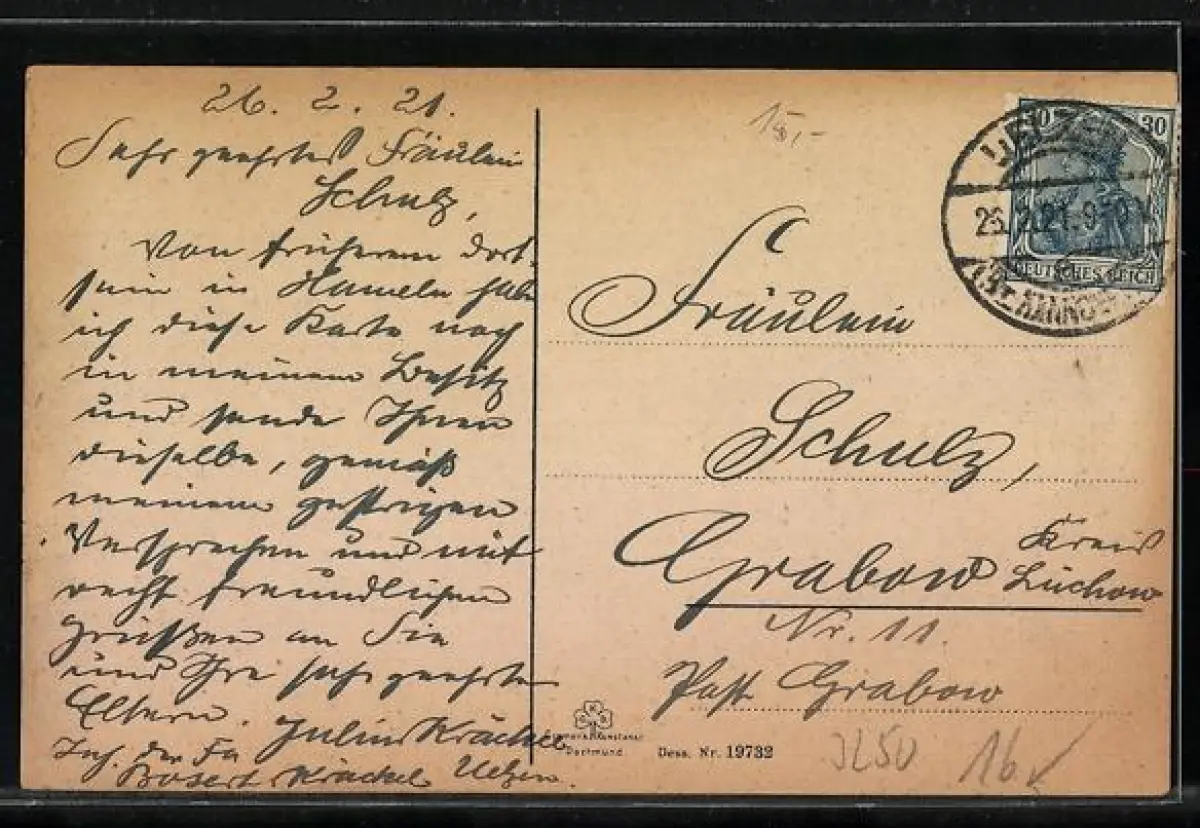 26. 2. 21.
Sehr geehrtes Fräulein
Schulz,
Von früherem Dort-
sein in Hameln habe
ich diese Karte noch
in meinem Besitz
und sende Ihnen
dieselbe, gemäß
meinem gestrigen
Versprechen und mit
recht freundlichen
Grüßen an Sie
und Ihre sehr geehrten
Eltern. Julius
Inh. der Fa
Uelzen.
15,-
30 30
UELZEN
26.2.21.9-10V
(Bz. HANNOVER)
DEUTSCHES REICH
Fräulein
Schulz,
Grabow Kreis
Lüchow
Nr. 11.
Post Grabow
Dortmund
Dess. Nr. 19732
16